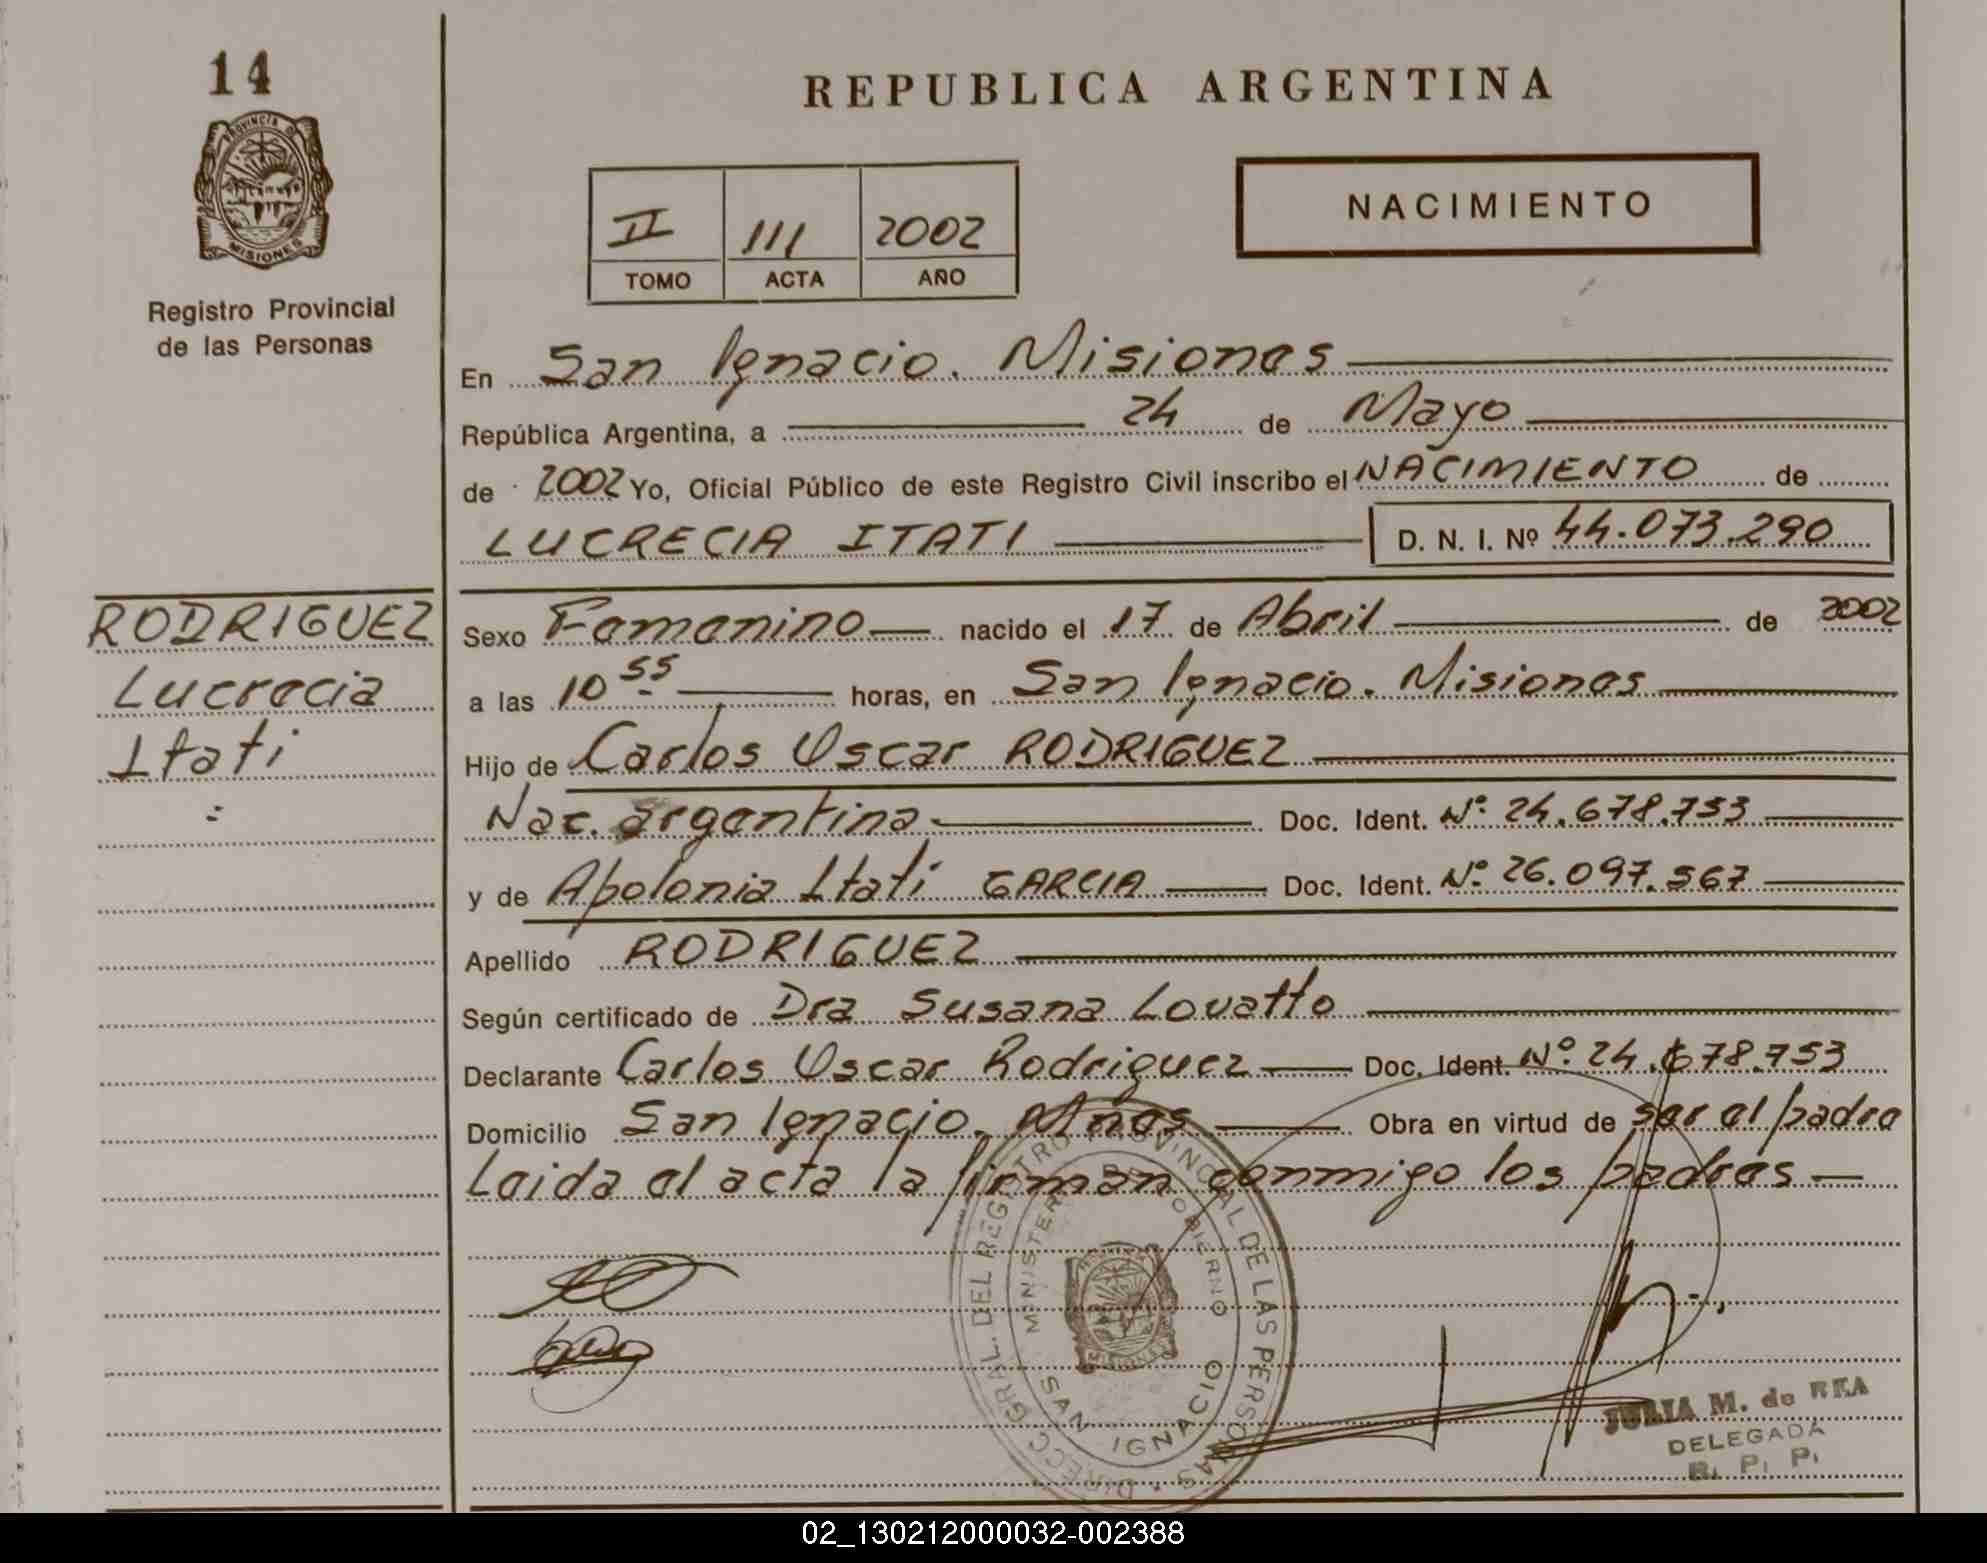 14
PROVINCIA DE
MISIONES
Registro Provincial
de las Personas
REPUBLICA ARGENTINA
II 111 2002
TOMO ACTA AÑO
NACIMIENTO
En San Ignacio. Misiones
República Argentina, a 24 de Mayo
de 2002 Yo, Oficial Público de este Registro Civil inscribo el NACIMIENTO de
LUCRECIA ITATI D. N. I. Nº 44.073.290
RODRIGUEZ
Lucrecia
Itati
Sexo Femenino nacido el 17 de Abril de 2002
a las 10 55 horas, en San Ignacio. Misiones
Hijo de Carlos Oscar RODRIGUEZ
Nac. argentina Doc. Ident. Nº 24.678.753
y de Apolonia Itati GARCIA Doc. Ident. Nº 26.097.567
Apellido RODRIGUEZ
Según certificado de Dra Susana Lovatto
Declarante Carlos Oscar Rodriguez Doc. Ident. Nº 24.678.753
Domicilio San Ignacio. Mnes Obra en virtud de ser el padre
Leida el acta la firman conmigo los padres
DIRECC. GRAL. DEL REGISTRO PROVINCIAL DE LAS PERSONAS
MINISTERIO DE GOBIERNO
MISIONES
SAN IGNACIO
JULIA M. de REA
DELEGADA
R. P. P.
02_130212000032-002388